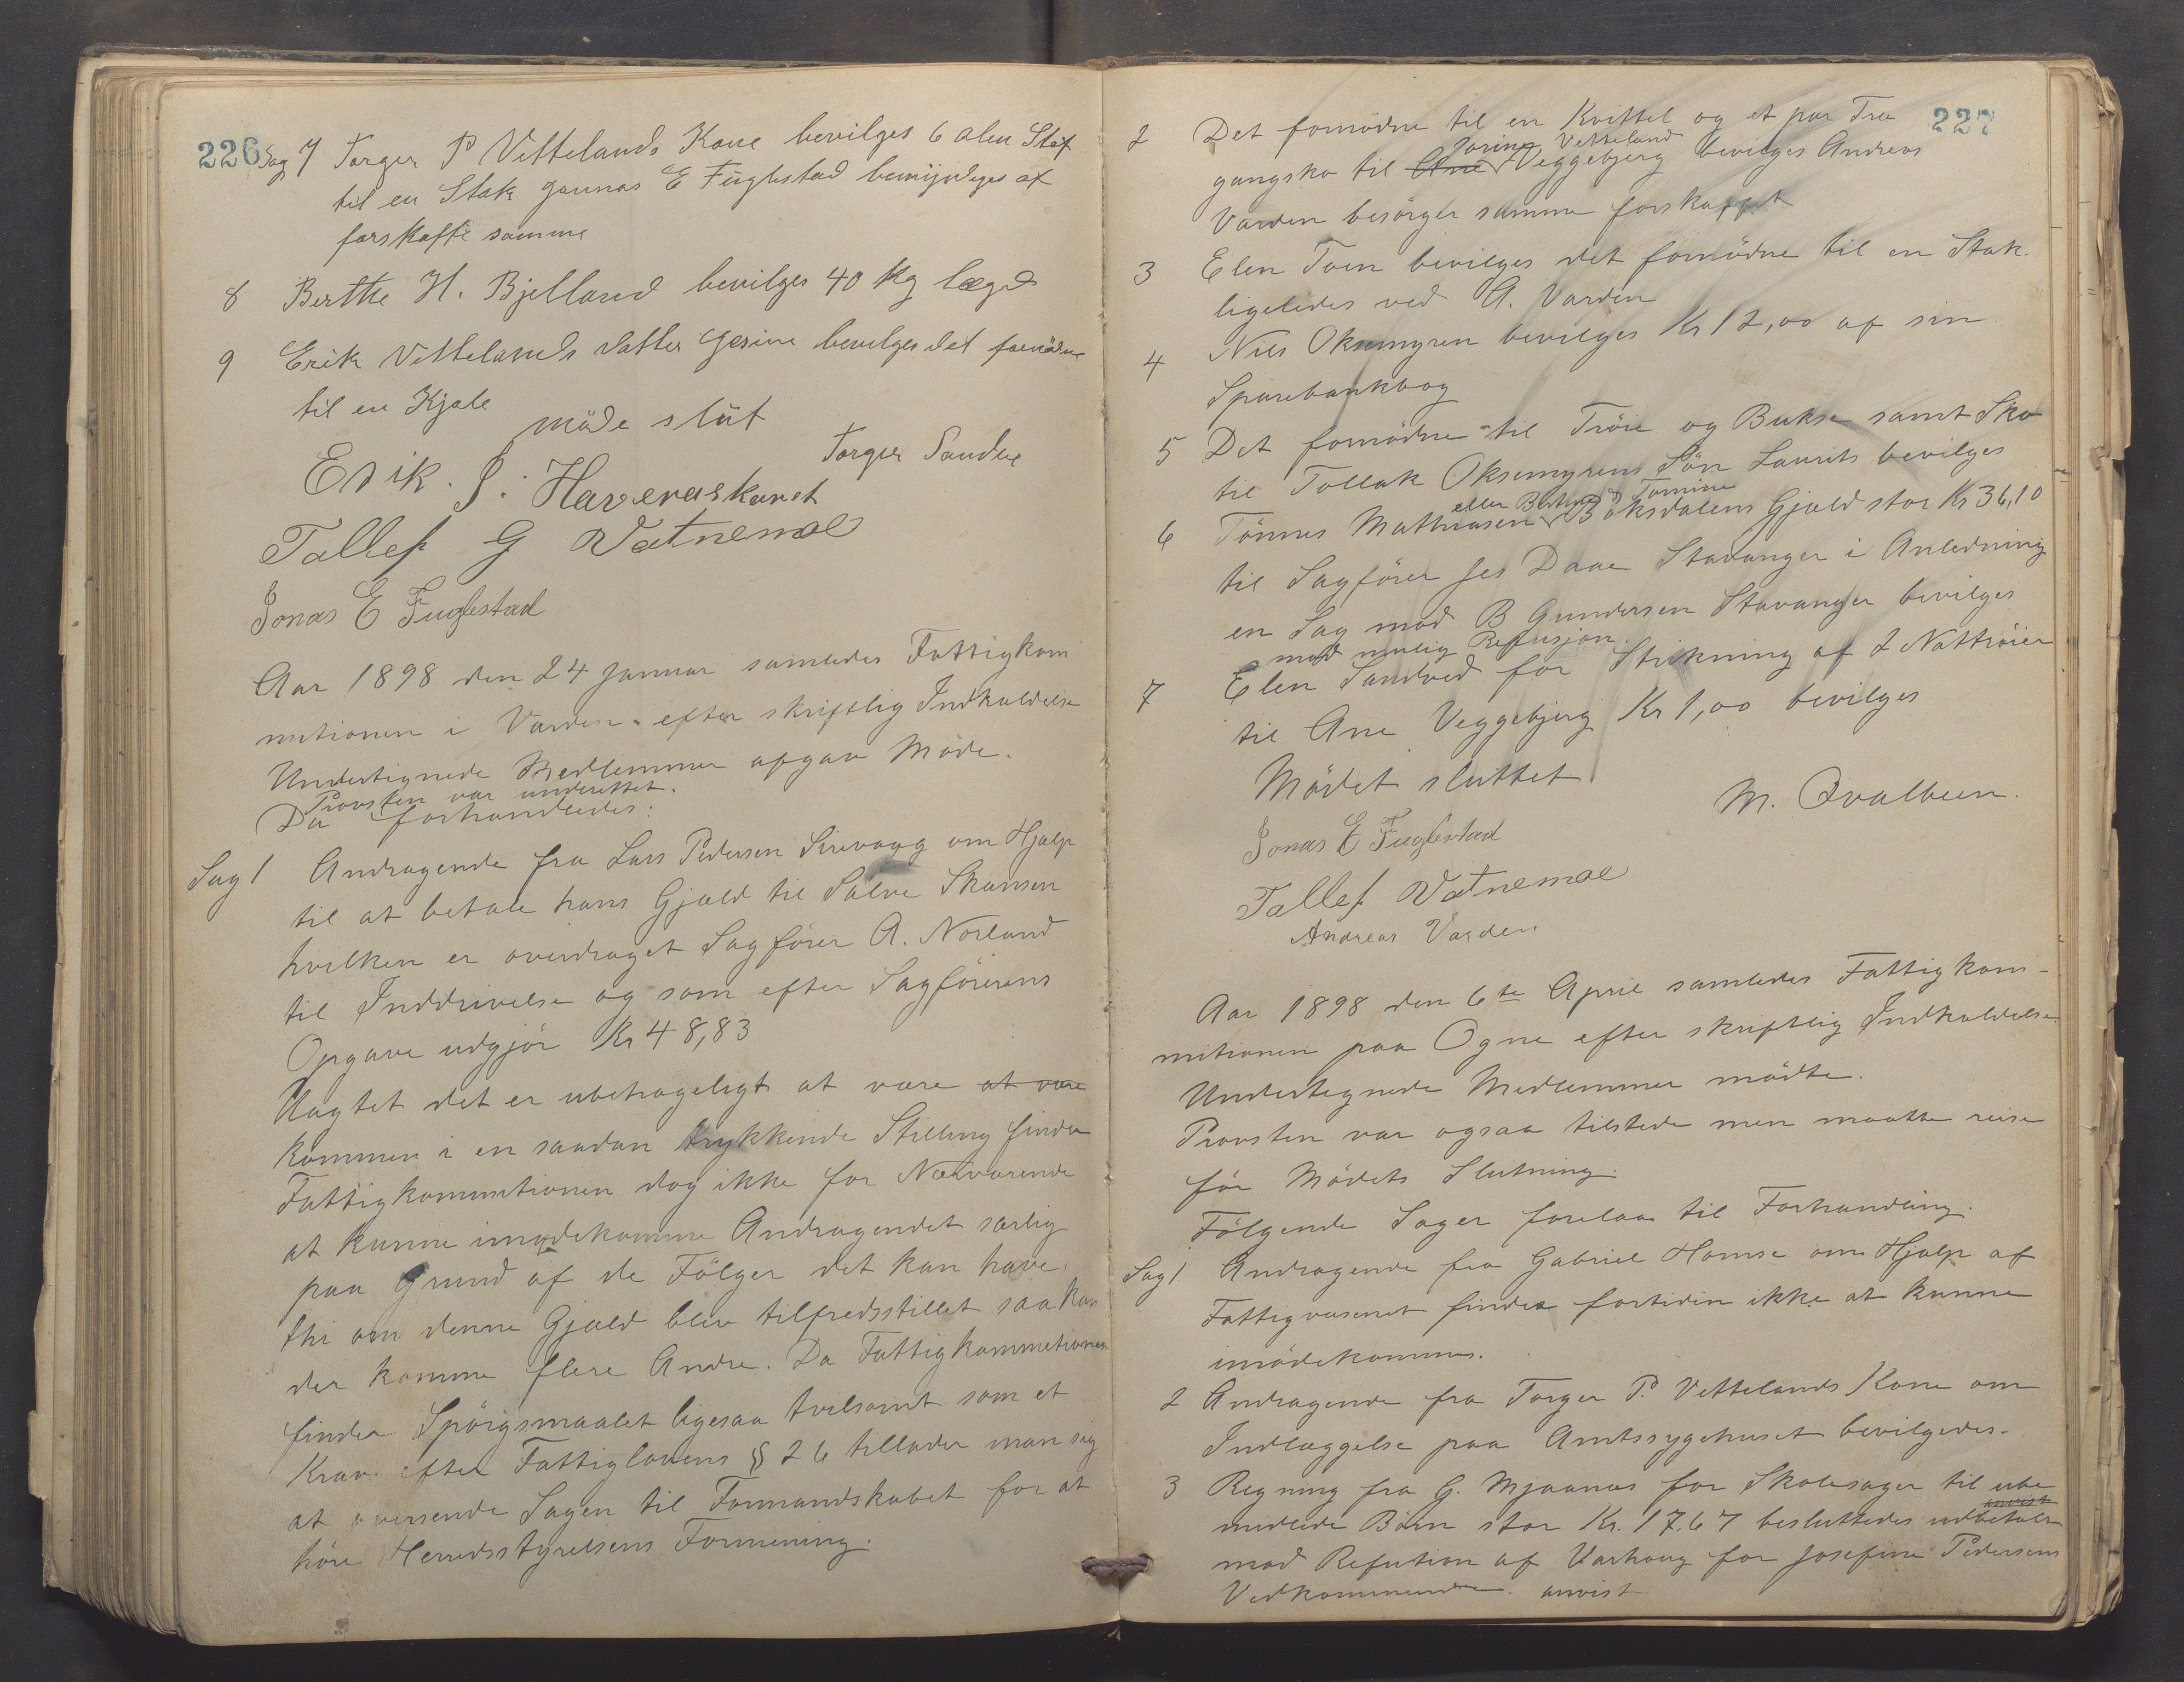 226
Sag 7 Torger P Vettelands Kone bevilges 6 alen Stof
til en Stak Jonnas E Fuglestad bemijndeges at
forskaffe samme
8 Berthe H. Bjelland bevilges 40 Kg lægd
9 Erik Vettelands datter Gesine bevilges det fornödne
til en Kjole
möde slut
Torger Sandve
Erik. S. Haveraskaret
Tallef G Vatnemoe
Jonas E Fuglestad
Aar 1898 den 24 Januar samledes Fattigkom
mitionen i Varden efter skriftlig Indkaldelse
Undertignede Medlemmer afgav Möde.
Provsten var underettet.
Da forhandledes:
Sag 1 Andragende fra Lars Pedersen Sirevaag om Hjælp
til at betale hans Gjæld til Salve Skansen
hvilken er overdraget Sagförer A. Norland
til Inddrivelse og som efter Sagförerens
Opgave udgjör Kr 48,83
Uagtet det er ubehageligt at være at være
kommen i en saadan trykkende Stilling finder
Fattigkommitionen dog ikke for Nærværende
at kunne imödekomme Andragendet særlig
paa Grund af de Fölger det kan have,
thi om denne Gjæld blev tilfredsstillet saa kan
der komme flere Andre. Da Fattigkommitionen
finder Spörgsmaalet ligesaa tvilsomt som et
Krav efter Fattiglovens § 26 tillader man sig
at oversende Sagen til Formandskabet for at
höre Herredsstyrelsens Formening.
227
2 Det fornödne til en Kvittel og et par Træ
Jorine Vetteland
gangsko til Ane Veggebjerg bevilges Andreas
Varden besörger samme forskaffet
3 Elen Toen bevilges det fornödne til en Stak
ligeledes ved A. Varden
4 Nils Oksemyren bevilges Kr 12,00 af sin
Sparebankbog
5 Det fornödne til Tröie og Bukse samt Sko
til Tollak Oksemyrens Sön Laurits bevilges
eller Berthe Tomine
6 Tönnes Mathiasen Böksdalens Gjæld stor Kr 36,10
til Sagförer Jes Daae Stavanger i Anledning
en Sag mod B Gundersen Stavanger bevilges
mod mulig Refusjon.
7 Elen Sandved for Strikning af 2 Nattröier
til Ane Veggebjerg Kr 1,00 bevilges
Mödet sluttet
M. Qvalbeen.
Jonas E Fuglestad
Tallef Vatnemoe
Andreas Varden
Aar 1898 den 6te April samledes Fattigkom-
mitionen paa Ogne efter skriftlig Indkaldelse.
Undertegnede Medlemmer mödte.
Provsten var ogsaa tilstede men maatte reise
för Mödets Slutning.
Fölgende Sager forelaa til Forhandling.
Sag 1 Andragende fra Gabriel Homse om Hjælp af
Fattigvæsenet findes fortiden ikke at kunne
imödekommes.
2 Andragende fra Torger P. Vettelands Kone om
Indlæggelse paa Amtssygehuset bevilgedes.
3 Regning fra G. Mjaanes for Skolesager til ube
anvist
midlede Börn stor Kr. 17,67 besluttedes udbetalt
mod Refution af Varhoug for Josefine Pedersens
Vedkommende. anvist